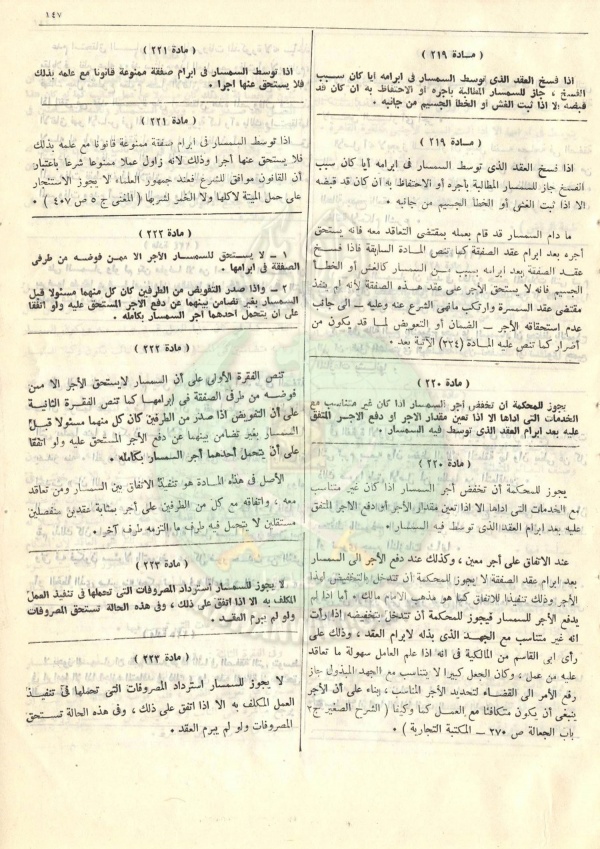 ١٤٧
( مــادة ٢١٩ )
اذا فسخ العقد الذى توسط السمسار فى ابرامه أيا كان سبب
الفسخ ، جاز للسمسار المطالبة بأجره أو الاحتفاظ به ان كان قد
قبضه الا اذا ثبت الغش أو الخطأ الجسيم من جانبه .
( مــادة ٢١٩ )
اذا فسخ العقد الذى توسط السمسار فى ابرامه أيا كان سبب
الفسخ جاز للسمسار المطالبة بأجره أو الاحتفاظ به ان كان قد قبضه
الا اذا ثبت الغش أو الخطأ الجسيم من جانبه .
ما دام السمسار قد قام بعمله بمقتضى التعاقد معه فانه يستحق
أجره بعد ابرام عقد الصفقة كما تنص المادة السابقة فاذا فسخ
عقد الصفقة بعد ابرامه بسبب من السمسار كالغش أو الخطأ
الجسيم فانه لا يستحق الأجر على عقد هذه الصفقة لأنه لم ينفذ
مقتضى عقد السمسرة وارتكب مانهى الشرع عنه وعليه ـ الى جانب
عدم استحقاقه الأجر ـ الضمان أو التعويض لمـا قد يكون من
أضرار كما تنص عليه المـادة (٢٢٤) الآتية بعد .
( مادة ٢٢٠ )
يجوز للمحكمة أن تخفض أجر السمسار اذا كان غير متناسب مع
الخدمات التى اداها الا اذا تعين مقدار الاجر او دفع الاجـر المتفق
عليه بعد ابرام العقد الذى توسط فيه السمسار .
( مادة ٢٢٠ )
يجوز للمحكمة أن تخفض أجر السمسار اذا كان غير متناسب
مع الخدمات التى اداها الا اذا تعين مقدار الأجر أو دفع الأجر المتفق
عليه بعد ابرام العقد الذى توسط فيه السمسار .
عند الاتفاق على أجر معين ، وكذلك عند دفع الأجر الى السمسار
بعد ابرام عقد الصفقة لا يجوز للمحكمة أن تتدخل بالتخفيض لهذا
الأجر وذلك تنفيذا للاتفاق كما هو مذهب الامام مالك . أما اذا لم
يدفع الأجر للسمسار فيجوز للمحكمة أن تتدخل بتخفيضه اذا رأت
انه غير متناسب مع الجهد الذى بذله لابرام العقد ، وذلك على
رأى ابى القاسم من المالكية فى انه اذا علم العامل سهولة ما تعاقد
عليه من عمل ، وكان الجعل كبيرا لا يتناسب مع الجهد المبذول جاز
رفع الأمر الى القضاء لتحديد الأجر المناسب ، بناء على أن الأجر
ينبغى أن يكون متكافئا مع العمـل كما وكيفا ( الشرح الصغير ج٢
باب الجعالة ص ٢٧٠ ـ المكتبة التجارية ) .
( مادة ٢٢١ )
اذا توسط السمسار فى ابرام صفقة ممنوعة قانونا مع علمه بذلك
فلا يستحق عنها أجرا .
( مادة ٢٢١ )
اذا توسط السمسار فى ابرام صفقة ممنوعة قانونا مع علمه بذلك
فلا يستحق عنها أجرا وذلك لانه زاول عملا ممنوعا شرعا باعتبار
أن القانون موافق للشرع فعند جمهور العلماء لا يجوز الاستئجار
على حمل الميتة لاكلها ولا الخمر لشربها ( المغنى ج ٥ ص ٤٠٧ ) .
( مادة ٢٢٢ )
١ ـ لا يستحق للسمسار الأجر الا ممن فوضه من طرفى
الصفقة فى ابرامها .
٢ ـ واذا صدر التفويض من الطرفين كان كل منهما مسئولا قبل
السمسار بغير تضامن بينهما عن دفع الاجر المستحق عليه ولو اتفقا
على ان يتحمل أحدهما أجر السمسار بكامله .
( مادة ٢٢٢ )
تنص الفقرة الأولى على أن السمسار لايستحق الأجر الا ممن
فوضه من طرفى الصفقة فى ابرامها كما تنص الفقرة الثانية
على أن التفويض اذا صدر من الطرفين كان كل منهما مسئولا قبل
السمسار بغير تضامن بينهما عن دفع الأجر المستحق عليه ولو اتفقا
على أن يتحمل أحدهما أجر السمسار بكامله .
الأصل فى هذه المادة هو تنفيذ الاتفاق بين السمسار ومن تعاقد
معه ، واتفاقه مع كل من الطرفين على أجر بمثابة عقدين منفصلين
مستقلين لا يتحمل فيه طرف ما التزمه طرف آخر .
( مادة ٢٢٣ )
لا يجوز للسمسار استرداد المصروفات التى تحملها فى تنفيذ العمل
المكلف به الا اذا اتفق على ذلك ، وفى هذه الحالة تستحق المصروفات
ولو لم يبرم العقـد .
( مادة ٢٢٣ )
لا يجوز للسمسار استرداد المصروفات التى تحملها فى تنفيـذ
العمل المكلف به الا اذا اتفق على ذلك ، وفى هذه الحالة تستحق
المصروفات ولو لم يبرم العقد .